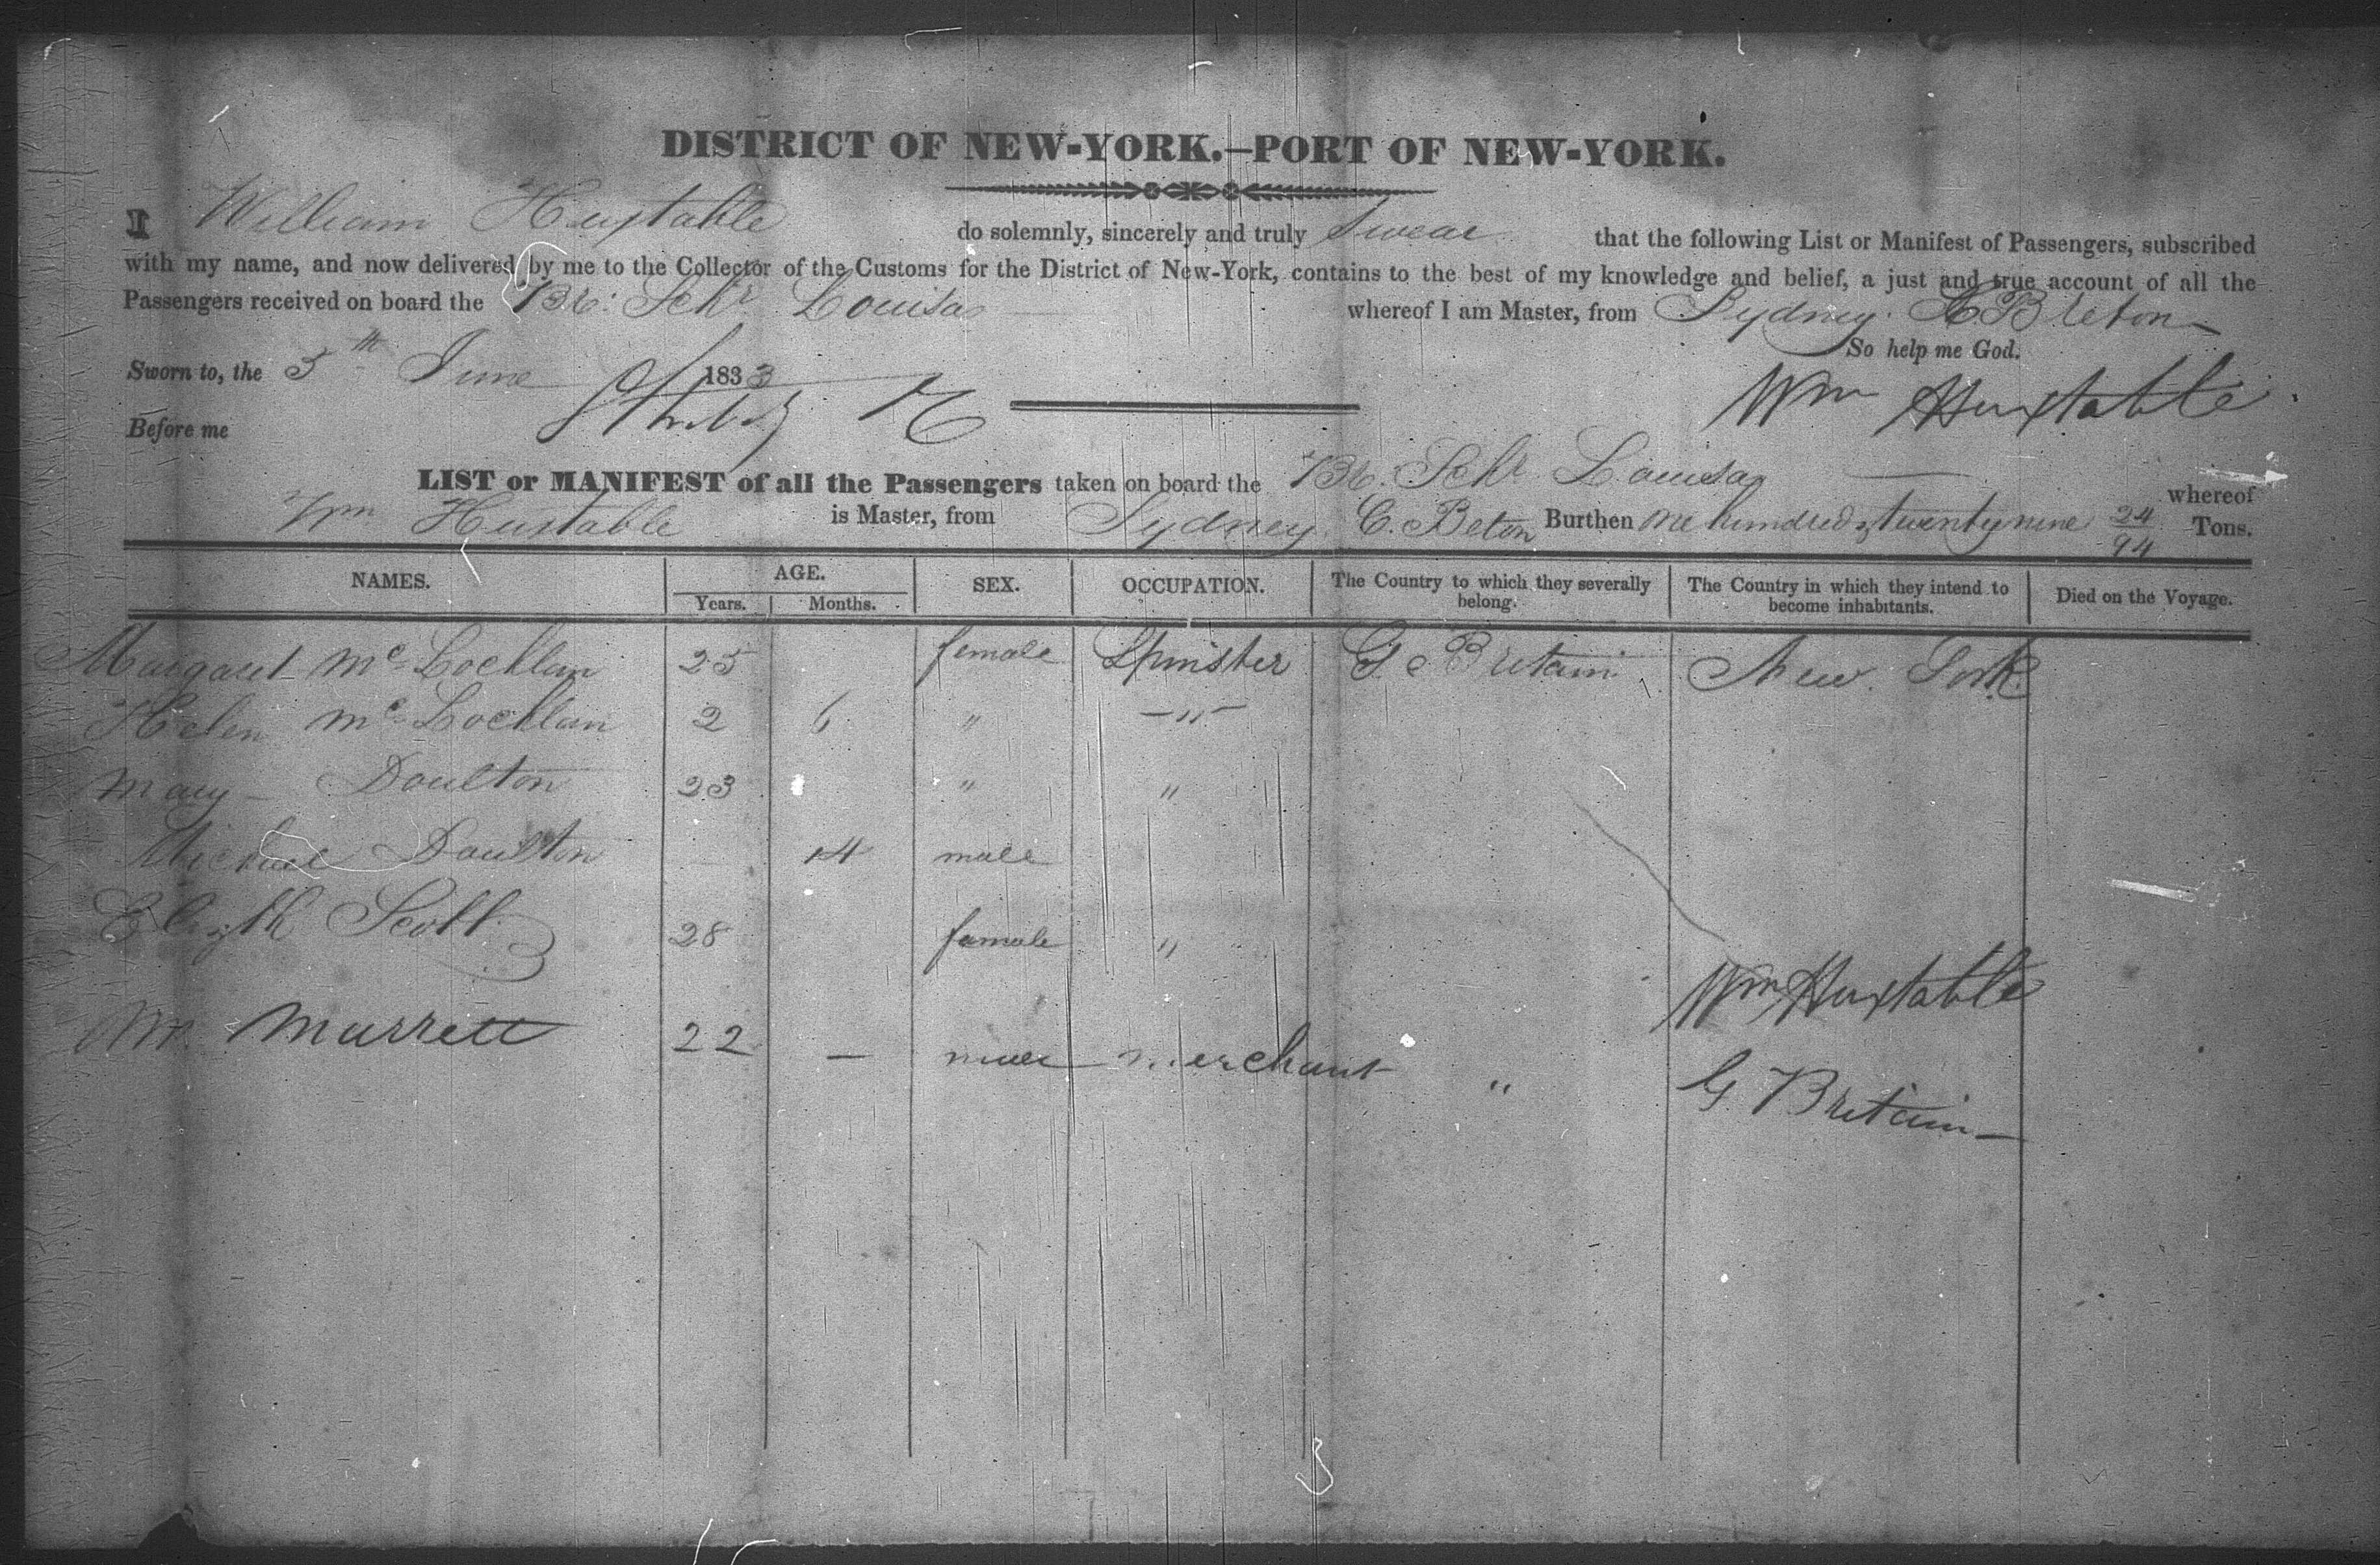 DISTRICT OF NEW-YORK.—PORT OF NEW-YORK.
I William Huxtable do solemnly, sincerely and truly Swear that the following List or Manifest of Passengers, subscribed
with my name, and now delivered by me to the Collector of the Customs for the District of New-York, contains to the best of my knowledge and belief, a just and true account of all the
Passengers received on board the Br. Schr Louisa whereof I am Master, from Sydney C Breton
So help me God.
Sworn to, the 5th June 1833
Wm Huxtable
Before me
LIST or MANIFEST of all the Passengers taken on board the Br. Schr Louisa whereof
Wm Huxtable is Master, from Sydney C. Beton Burthen one hundred & twenty nine 24/94 Tons.
NAMES. AGE. SEX. OCCUPATION. The Country to which they severally belong. The Country in which they intend to become inhabitants. Died on the Voyage.
Years. Months.
Margaret McLochlan 25 female Spinster G. Britain New York
Helen McLochlan 2 6 " — " —
Mary Doulton 23 " "
Michael Doulton 14 male
Elizth Scott 28 female "
Wm Huxtable
Mr. Marrett 22 — male merchant " G. Britain —